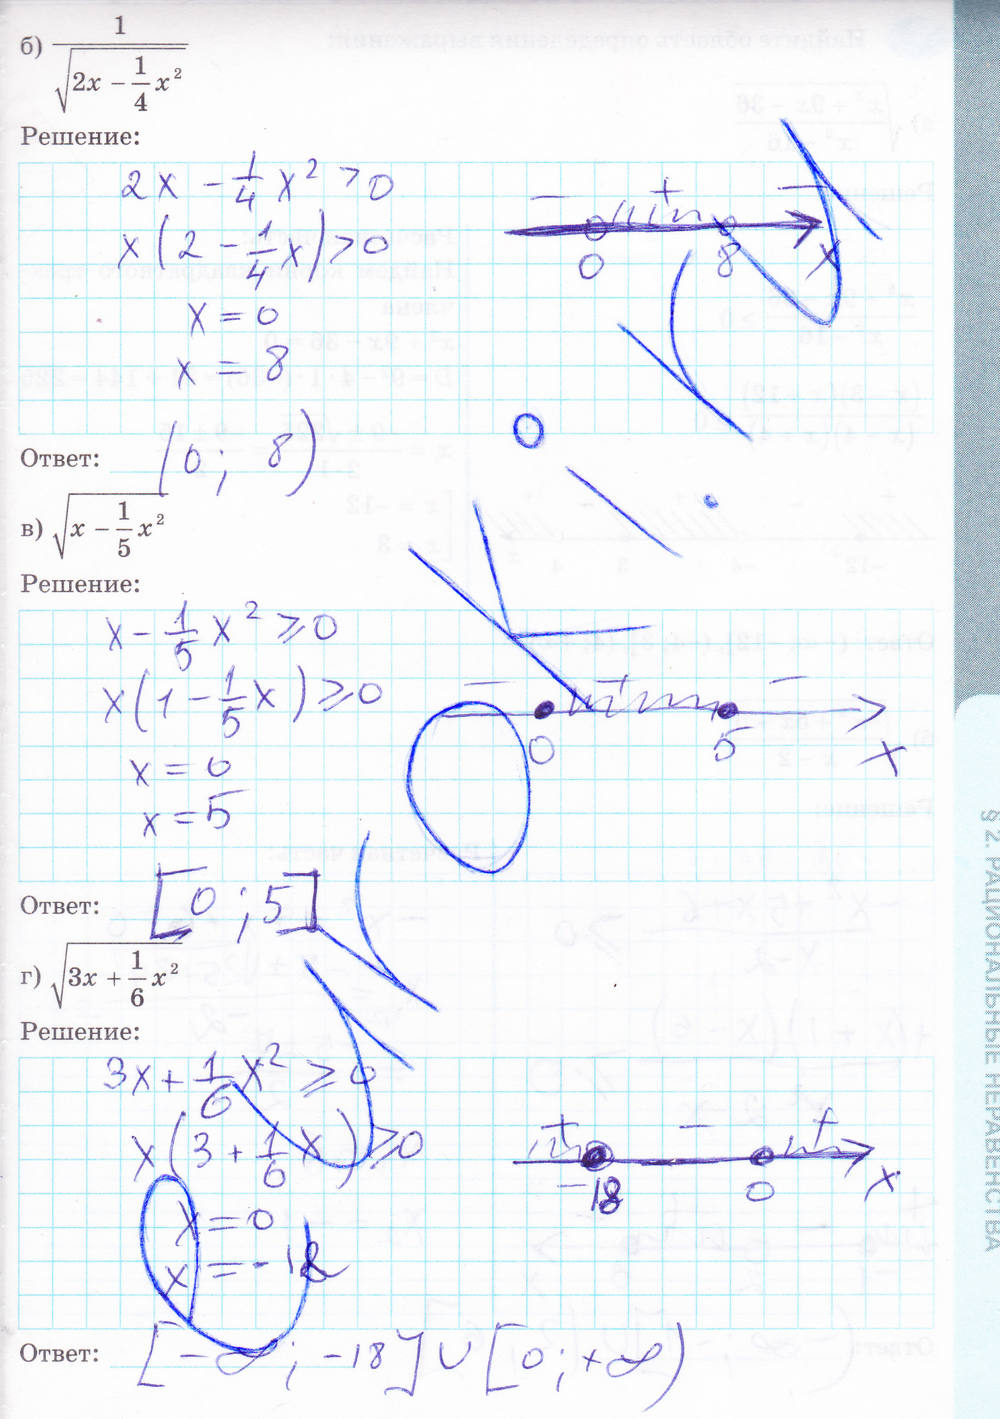 б) 1/√(2x − 1/4 x²)
Решение:
2x − 1/4 x² > 0
x(2 − 1/4 x) > 0
x = 0
x = 8
− + −
0 8 x
Ответ: (0; 8)
в) √(x − 1/5 x²)
Решение:
x − 1/5 x² ≥ 0
x(1 − 1/5 x) ≥ 0
x = 0
x = 5
− + −
0 5 x
Ответ: [0; 5]
г) √(3x + 1/6 x²)
Решение:
3x + 1/6 x² ≥ 0
x(3 + 1/6 x) ≥ 0
x = 0
x = −18
+ − +
−18 0 x
Ответ: [−∞; −18] ∪ [0; +∞)
§ 2. РАЦИОНАЛЬНЫЕ НЕРАВЕНСТВА